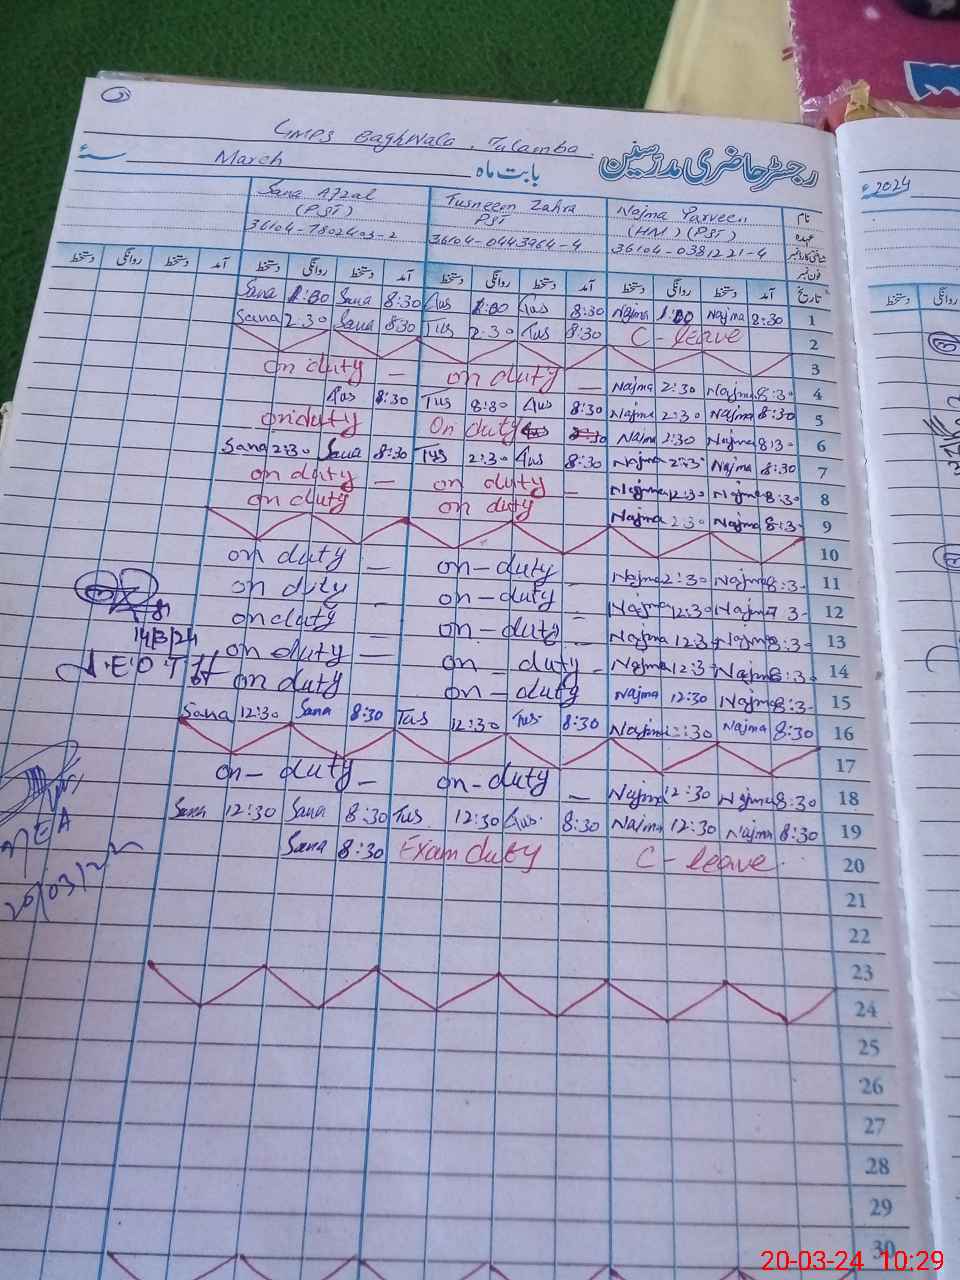 GMPS BaghWala. Tulamba.
رجسٹر حاضری مدرسین
بابت ماہ March سنہ ء
ء 2024
Sana Afzal Tusneem Zahra Najma Parveen نام
(PST) PST (HM) (PST) عہدہ
36104-7802403-2 36104-0443964-4 36104-0381221-4
فون نمبر
دستخط روانگی دستخط آمد دستخط روانگی دستخط آمد دستخط روانگی دستخط آمد تاریخ
Sana 1:00 Sana 8:30 Tus 1:00 Tus 8:30 Najma 1:00 Najma 8:30 1
Sana 2:30 Sana 8:30 Tus 2:30 Tus 8:30 C-leave 2
3
on duty — on duty — Najma 2:30 Najma 8:30 4
Tus 8:30 Tus 8:30 Tus 8:30 Najma 2:30 Najma 8:30 5
on duty On duty Najma 2:30 Najma 8:30 6
Sana 2:30 Sana 8:30 Tus 2:30 Tus 8:30 Najma 2:30 Najma 8:30 7
on duty — on duty — Najma 12:30 Najma 8:30 8
on duty on duty Najma 2:30 Najma 8:3- 9
10
on duty — on-duty — Najma 2:30 Najma 8:3- 11
on duty — on-duty — Najma 12:30 Najma 12
on duty — on-duty — Najma 12:3 Najma 8:3- 13
14/3/24
on duty — on duty - Najma 12:3 Najma 8:3- 14
on duty on duty Najma 12:30 Najma 8:3- 15
Sana 12:30 Sana 8:30 Tus 12:30 Tus 8:30 Najma Najma 8:30 16
17
on-duty - on-duty — Najma 12:30 Najma 8:30 18
Sana 12:30 Sana 8:30 Tus 12:30 Tus 8:30 Najma 12:30 Najma 8:30 19
Sana 8:30 Exam duty C-leave 20
MEA
20/03/
21
22
23
24
25
26
27
28
29
30
20-03-24 10:29